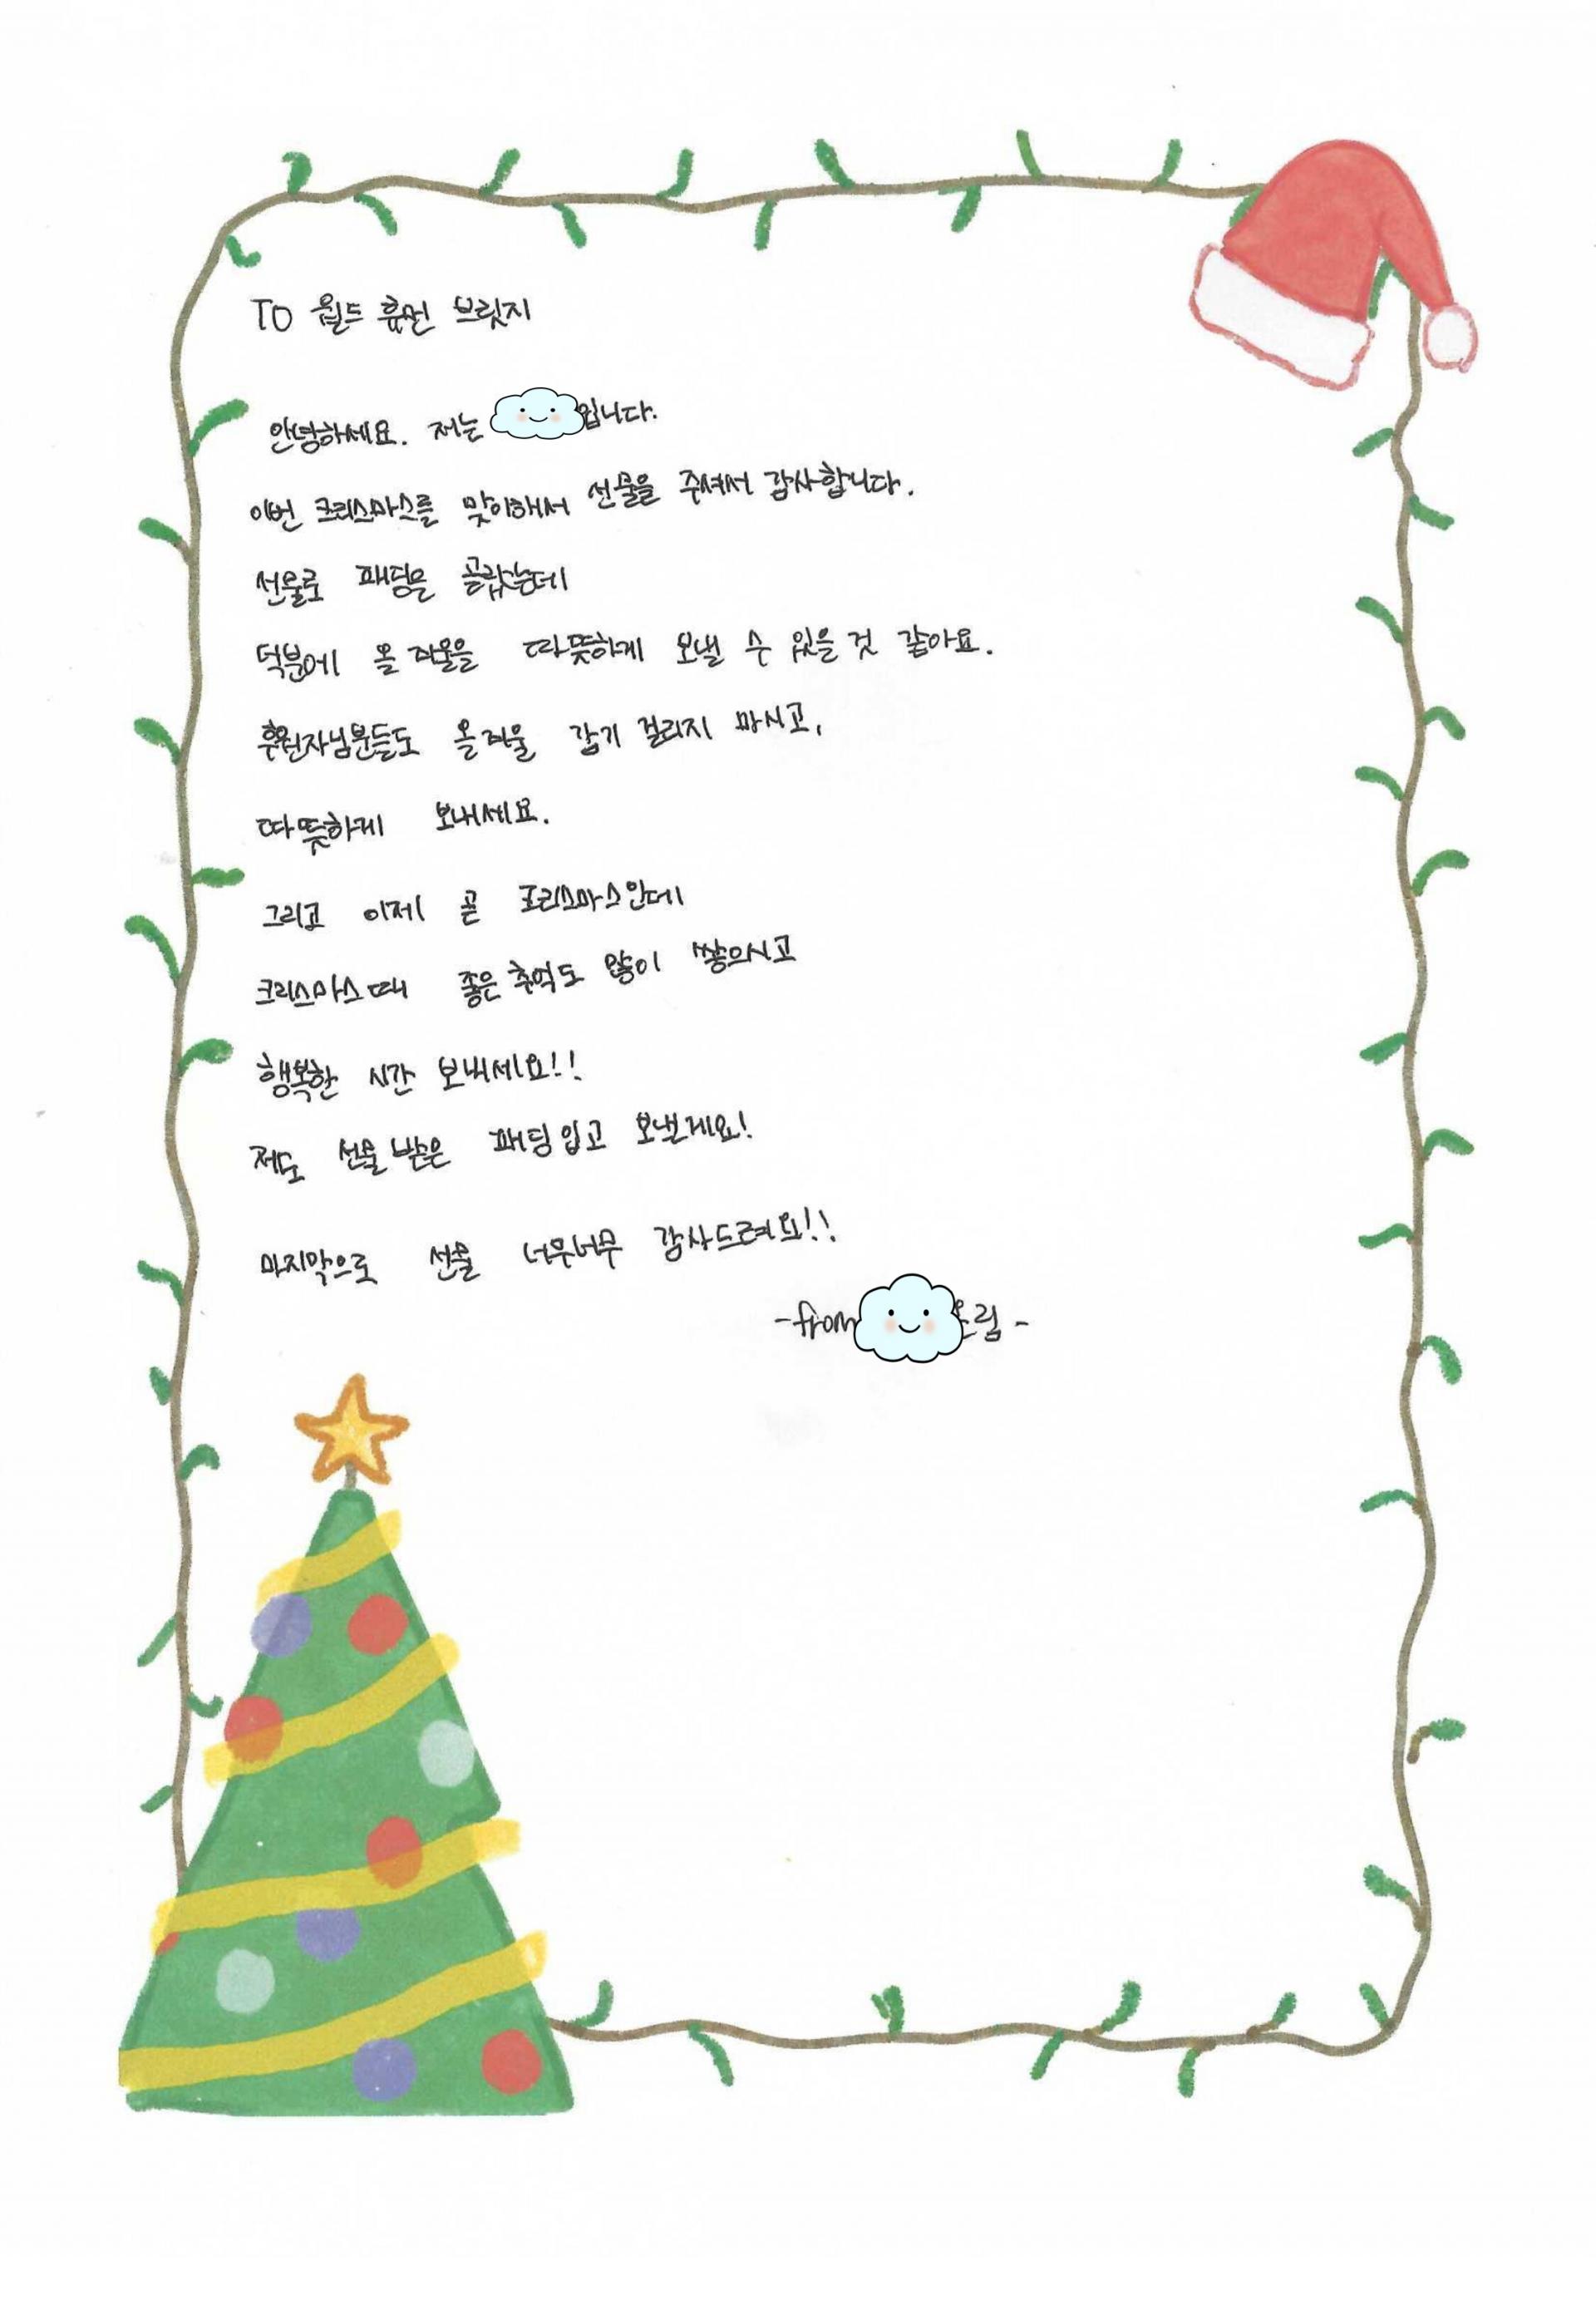 TO 월드 휴먼 브릿지
안녕하세요. 저는 입니다.
이번 크리스마스를 맞이해서 선물을 주셔서 감사합니다.
선물로 패딩을 골랐는데
덕분에 올 겨울을 따뜻하게 보낼 수 있을것 같아요.
후원자님분들도 올겨울 감기 걸리지 마시고,
따뜻하게 보내세요.
그리고 이제 곧 크리스마스인데
크리스마스때 좋은추억도 많이 쌓으시고
행복한 시간 보내세요!!
저도 선물받은 패딩입고 보낼게요!
마지막으로 선물 너무너무 감사드려요!!
-from 드림-